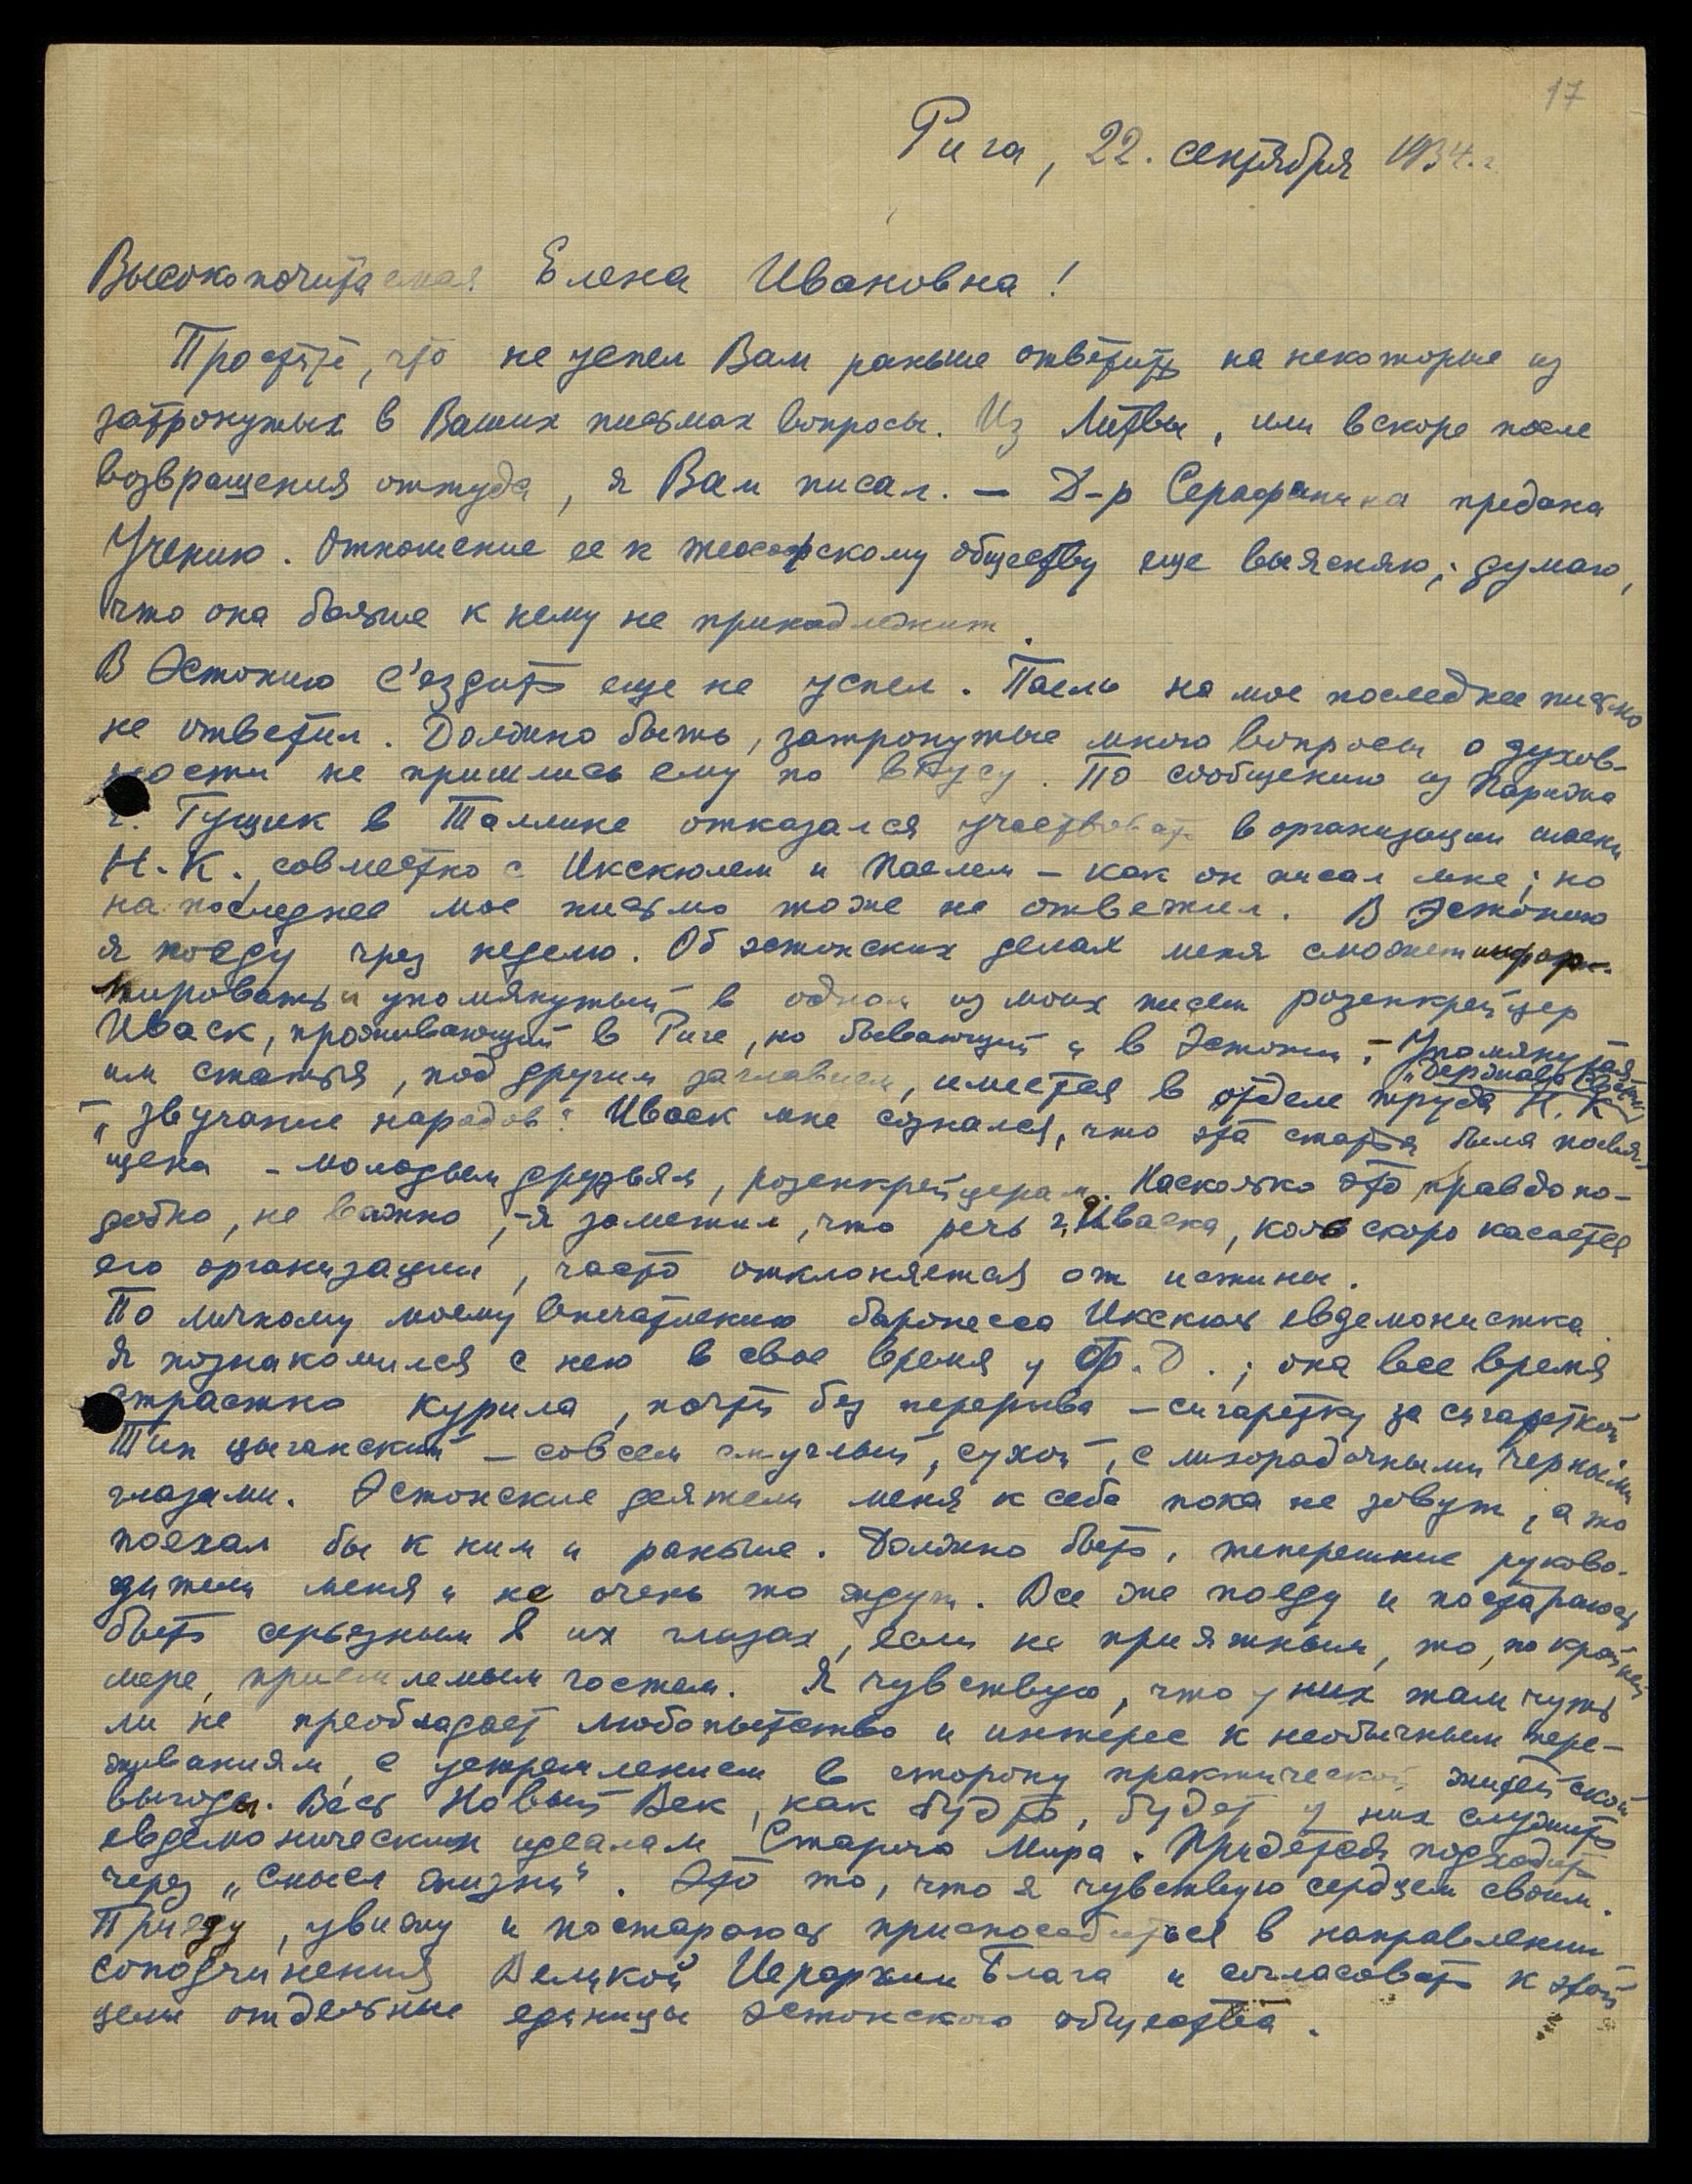 17
Рига, 22. сентября 1934.г
Высокопочитаемая Елена Ивановна!
Простите, что не успел Вам раньше ответить на некоторые из
затронутых в Ваших письмах вопросы. Из Литвы, или вскоре после
возвращения оттуда, я Вам писал. — Д-р Серафинина предана
Учению. Отношение ее к теософскому обществу еще выясняю; думаю,
что она больше к нему не принадлежит.
В Эстонию с'ездить еще не успел. Паель на мое последнее письмо
не ответил. Должно быть, затронутые мною вопросы о духов-
ности не пришлись ему по вкусу. По сообщению из Парижа
г. Гущик в Таллине отказался участвовать в организации
Н.К., совместно с Икскюлем и Паелем — как он писал мне; но
на последнее мое письмо тоже не ответил. В Эстонию
я поеду чрез неделю. Об эстонских делах меня сможет инфор-
мировать и упомянутый в одном из моих писем розенкрейцер
Иваск, проживающий в Риге, но бывающий и в Эстонии; — Упомянутая
им статья, под другим заглавием, имеется в отделе труда Н.К. "Держава Света"
— "Звучание народов". Иваск мне сознался, что эта статья была посвя-
щена — молодым друзьям, розенкрейцерам. Насколько это правдопо-
добно, не важно; — я заметил, что речь г. Иваска, коль скоро касается
его организации, часто отклоняется от истины.
По личному моему впечатлению баронесса Икскюль евдемонистка.
Я познакомился с нею в свое время у Ф.Д.; она все время
страстно курила, почти без перерыва — сигаретку за сигареткой
Тип цыганский — совсем смуглый, сухой, с лихорадочными черными
глазами. Эстонские деятели меня к себе пока не зовут, а то
поехал бы к ним и раньше. Должно быть, теперешние руково-
дители меня и не очень то ждут. Все же поеду и постараюсь
быть серьезным в их глазах, если не приятным, то, по крайней
мере, приемлемым гостем. Я чувствую, что у них там чуть
ли не преобладает любопытство и интерес к необычным пере-
живаниям, с устремлением в сторону практической житейской
выгоды. Весь Новый Век, как будто, будет у них служить
евдемоническим идеалам Старого Мира. Придется подходить
через "смысл жизни". Это то, что я чувствую сердцем своим.
Приеду, увижу и постараюсь приспособиться в направлении
соподчинения Великой Иерархии Блага и согласовать к этой
цели отдельные единицы эстонского общества.